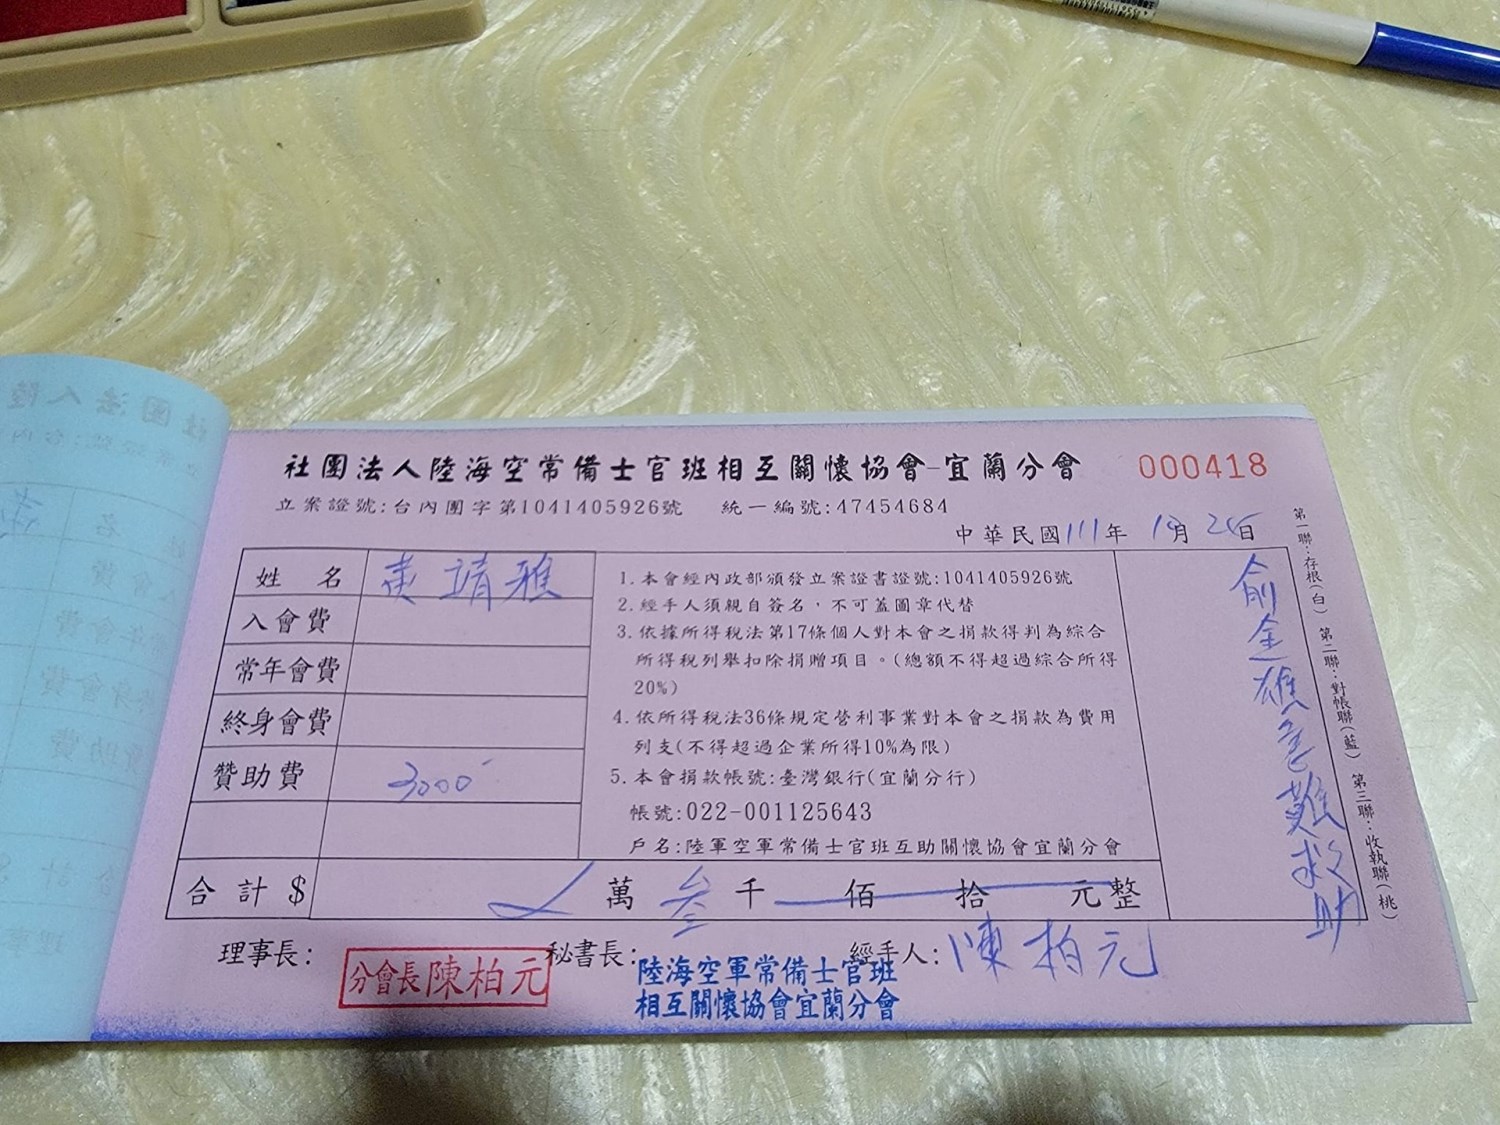 社團法人陸海空常備士官班相互關懷協會-宜蘭分會 000418
立案證號:台內團字第1041405926號 統一編號:47454684
中華民國111年 月 日
姓 名 靖雅
入會費
常年會費
終身會費
贊助費 3000
1.本會經內政部頒發立案證書證號:1041405926號
2.經手人須親自簽名，不可蓋圖章代替
3.依據所得稅法第17條個人對本會之捐款得判為綜合
所得稅列舉扣除捐贈項目。(總額不得超過綜合所得
20%)
4.依所得稅法36條規定營利事業對本會之捐款為費用
列支(不得超過企業所得10%為限)
5.本會捐款帳號:臺灣銀行(宜蘭分行)
帳號:022-001125643
戶名:陸軍空軍常備士官班互助關懷協會宜蘭分會
俞金雄急難救助
合 計 $ 萬 叁 千 佰 拾 元整
理事長: 秘書長: 經手人:陳柏元
分會長陳柏元
陸海空軍常備士官班
相互關懷協會宜蘭分會
第一聯:存根(白) 第二聯:對帳聯(藍) 第三聯:收執聯(桃)